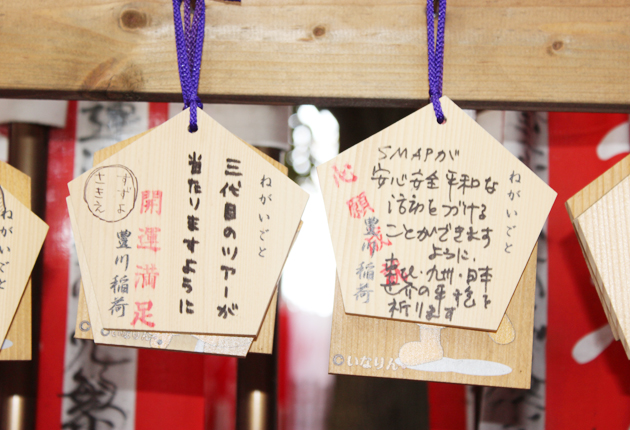 ねがいごと
三代目のツアーが
当たりますように
開運満足
豊川稲荷
すずよ
さきえ
ねがいごと
SMAPが
安心安全平和な
活動をつづける
ことができます
ように、
九州・日本
世界の平和を
祈ります
心願成就
豊川稲荷
◎いなりん
ねがいごと